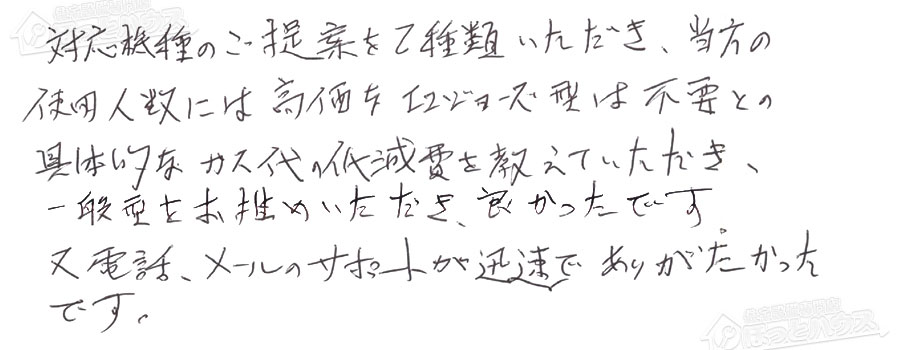 対応機種のご提案を2種類いただき、当方の
使用人数には高価なエコジョーズ型は不要との
具体的なガス代の低減費を教えていただき、
一般型をお推めいただき、良かったです
又電話、メールのサポートが迅速でありがたかった
です。
ほっとハウス